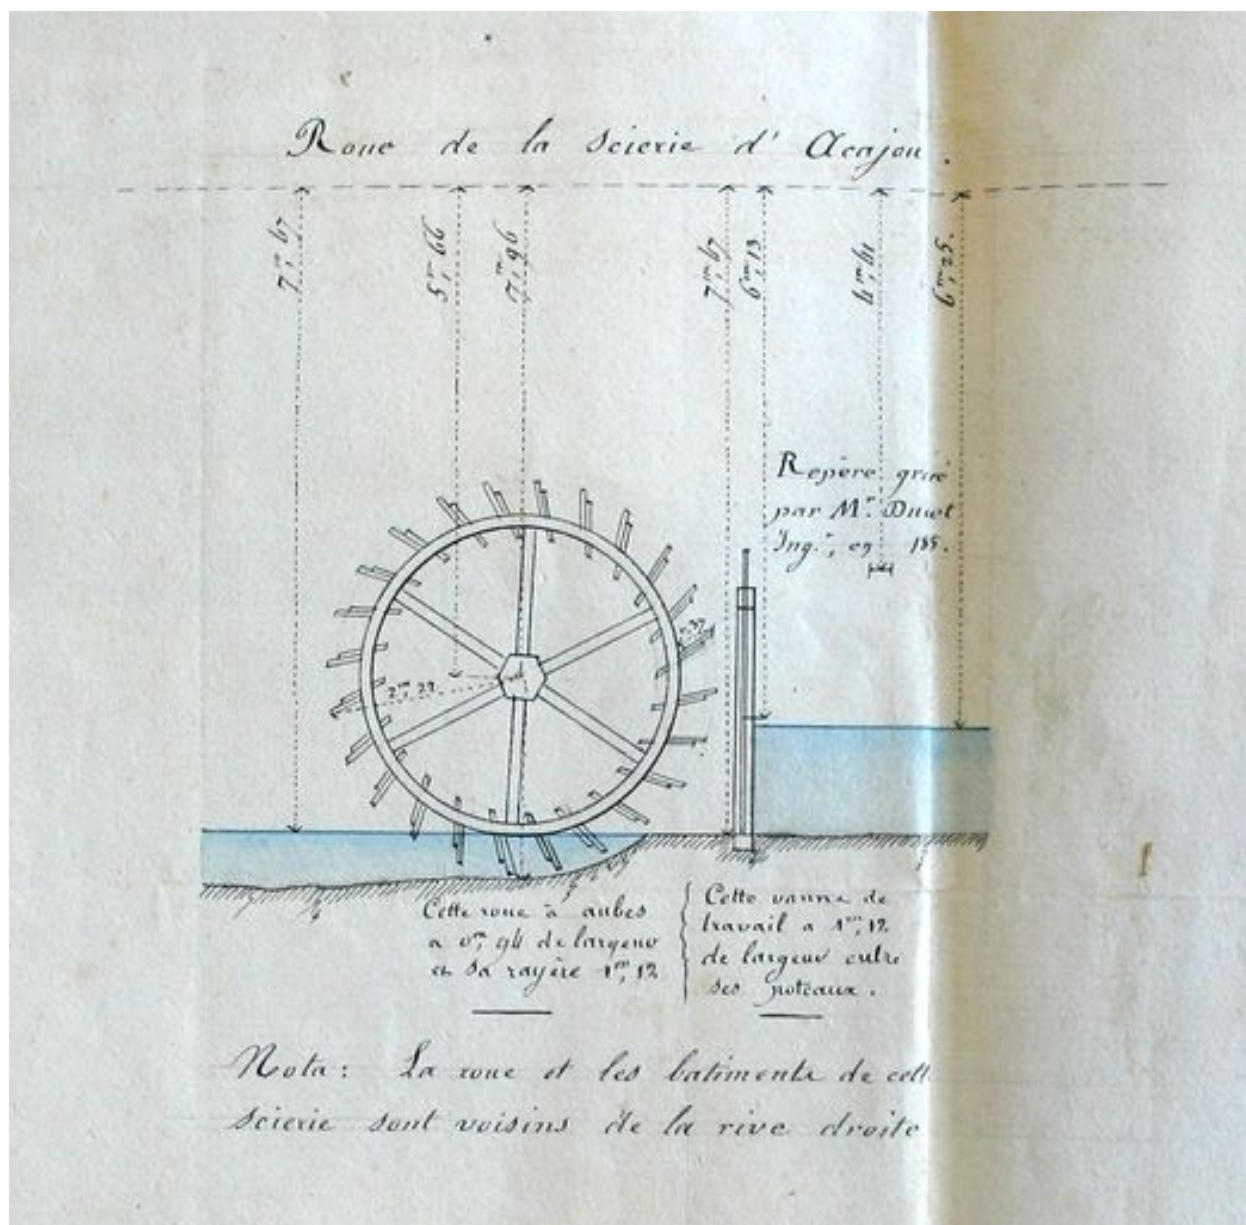 Roue de la scierie d'Acajou.
7m,67
5m,66
7m,96
7m,67
6m,13
4m,61
6m,25.
Repère gravé
par Mr. Ducot
Ingr., en 185.
0m,37
2m,29
Cette roue à aubes
a 0m,94 de largeur
et sa rayère 1m,12
Cette vanne de
travail a 1m,12
de largeur entre
ses poteaux.
Nota: La roue et les batiments de cett
scierie sont voisins de la rive droite